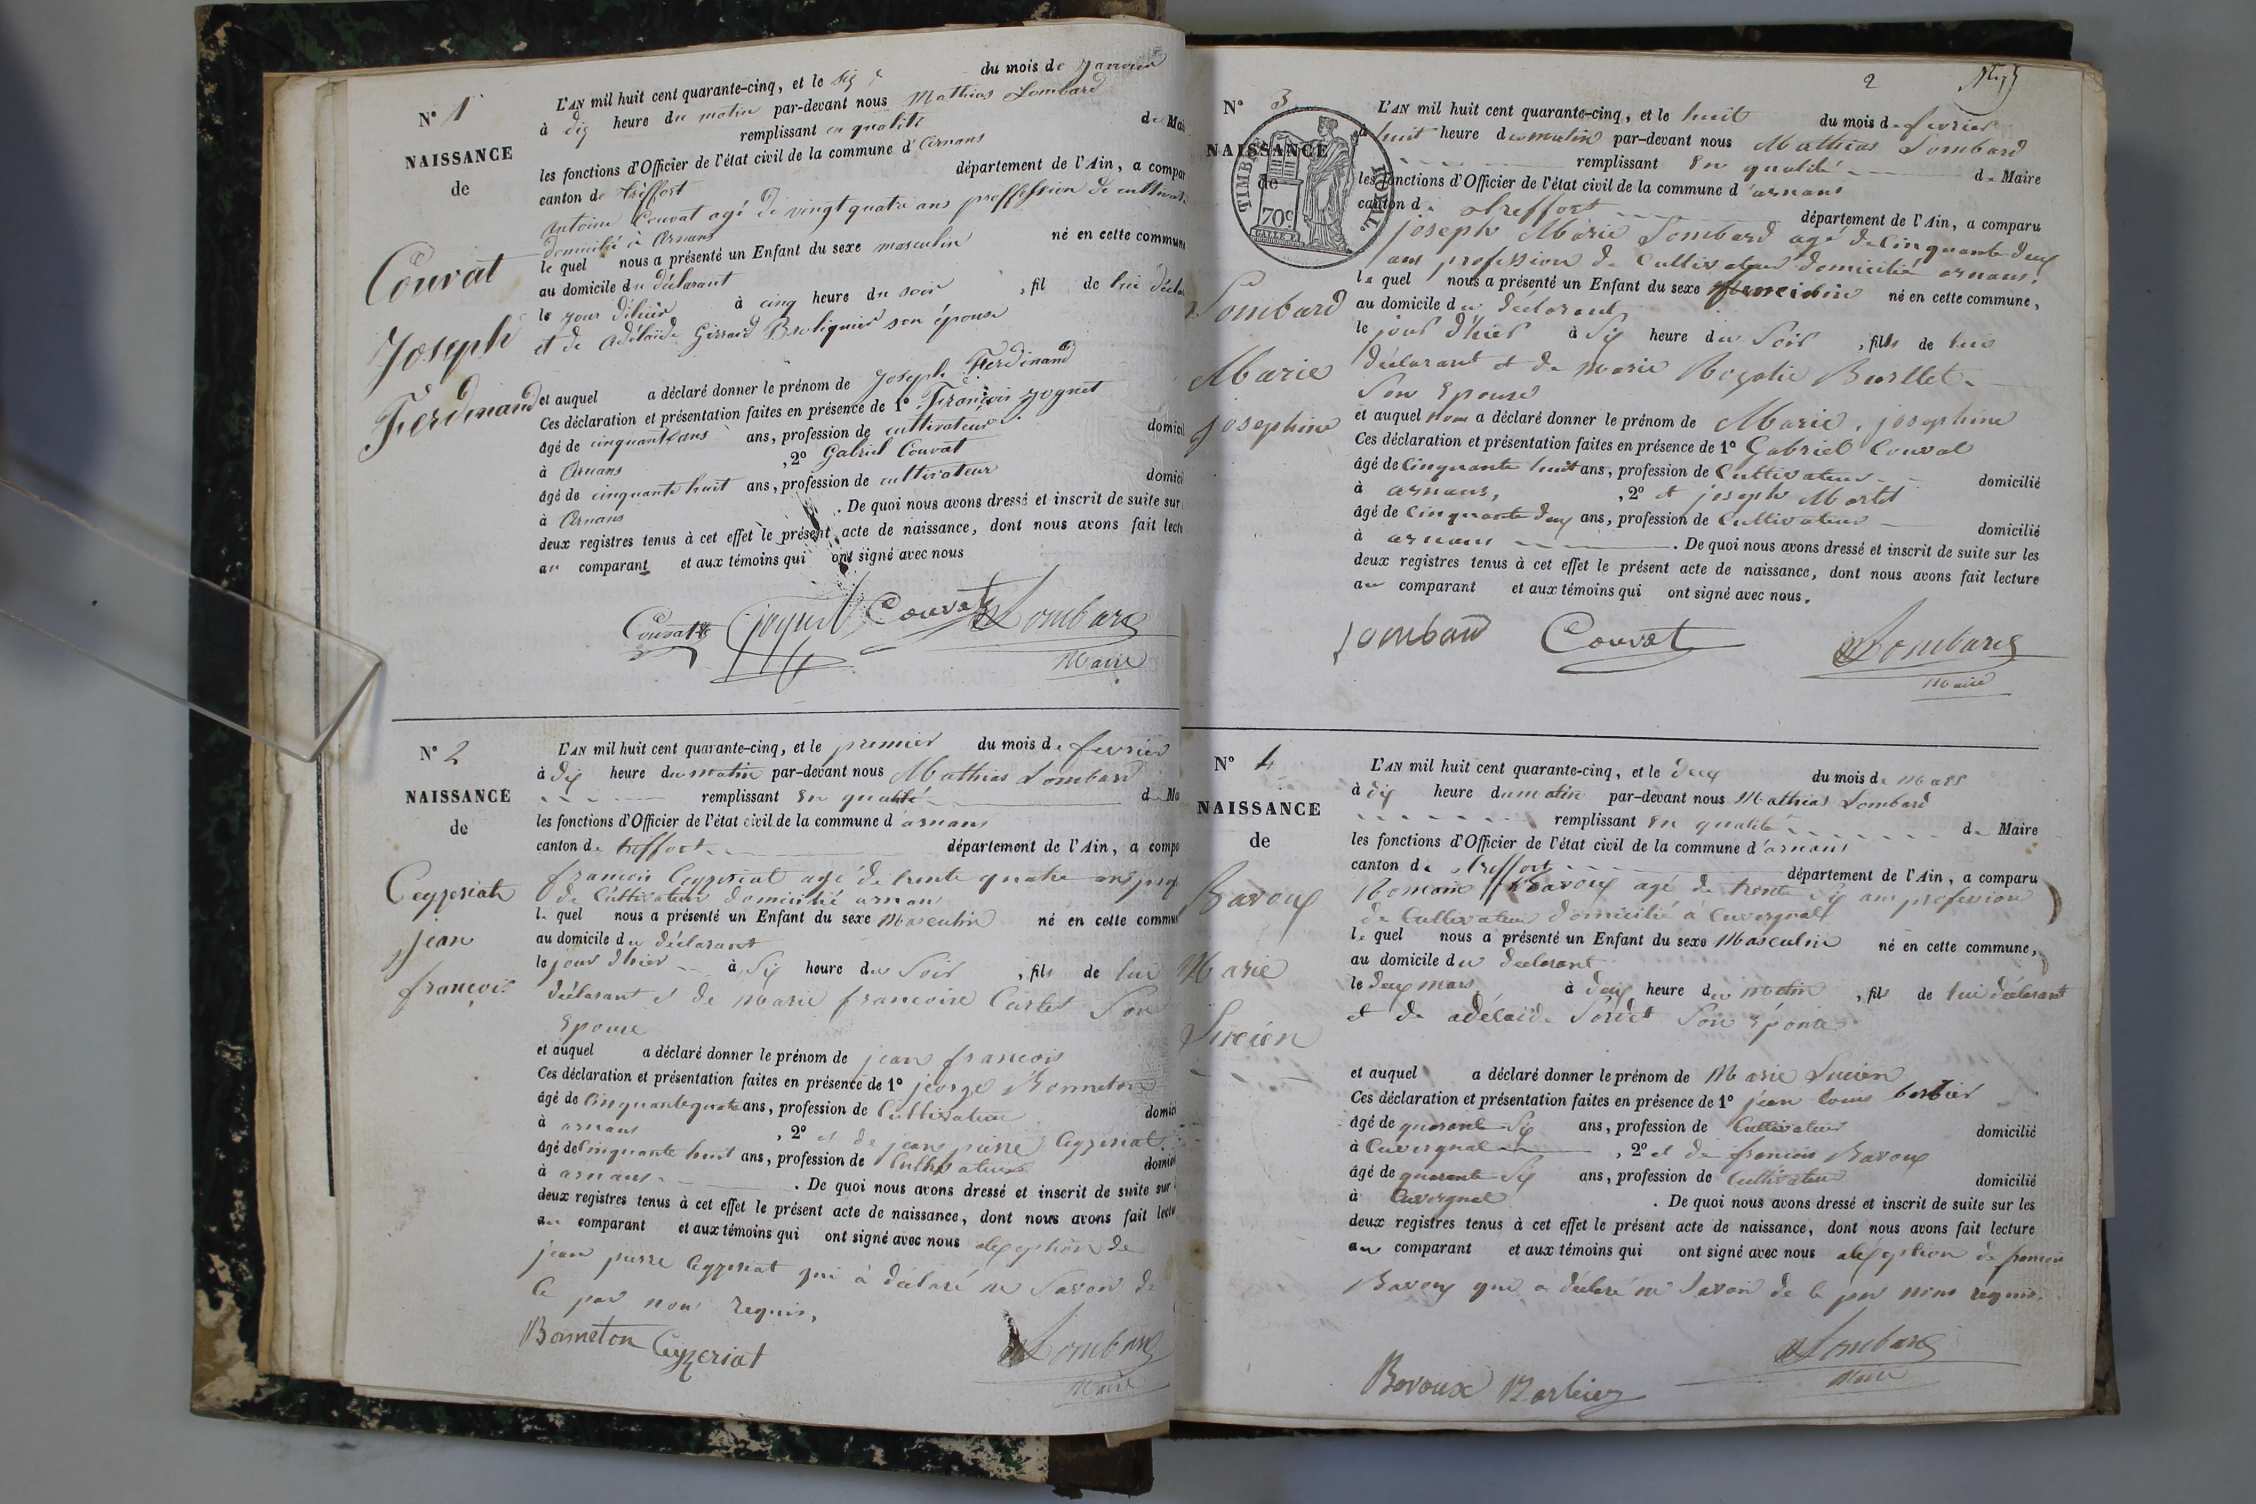 N° 1
NAISSANCE
de
Couvat
Joseph
Ferdinand
L'AN mil huit cent quarante-cinq, et le six du mois de janvier
à dix heure du matin par-devant nous Mathias Lombard
remplissant en qualité de Mai
les fonctions d'Officier de l'état civil de la commune d'Arnans
canton de treffort département de l'Ain, a compar
Antoine Couvat agé de vingt quatre ans proffession de cultivat
domicilié à Arnans
le quel nous a présenté un Enfant du sexe masculin né en cette commune
au domicile du déclarant
le jour d'hier à cinq heure du soir , fil de lui décla
et de Adélaïde Girraud son épouse
et auquel a déclaré donner le prénom de Joseph Ferdinand
Ces déclaration et présentation faites en présence de 1° François
âgé de cinquante ans ans, profession de cultivateur domicil
à Arnans , 2° Gabriel Couvat
âgé de cinquante huit ans, profession de cultivateur domici
à Arnans . De quoi nous avons dressé et inscrit de suite sur
deux registres tenus à cet effet le présent acte de naissance, dont nous avons fait lectu
au comparant et aux témoins qui ont signé avec nous
Couvat Couvat Lombard
Maire
N° 2
NAISSANCE
de
Ceyzeriat
jean
françois
L'AN mil huit cent quarante-cinq, et le premier du mois de fevrier
à dix heure du matin par-devant nous Mathias Lombard
remplissant en qualité de Ma
les fonctions d'Officier de l'état civil de la commune d'arnans
canton de treffort département de l'Ain, a compa
françois Ceyzeriat agé de trente quatre ans prof
de Cultivateur domicilié arnans
le quel nous a présenté un Enfant du sexe Masculin né en cette commun
au domicile du déclarant
le jour d'hier à six heure du soir , fils de lui
déclarant et de Marie francoise Carlet Son
Epouse
et auquel a déclaré donner le prénom de jean francois
Ces déclaration et présentation faites en présence de 1° jeorge Bonneton
âgé de Cinquante quatre ans, profession de Cultivateur domici
à arnans , 2° et de jean pierre Ceyzeriat
âgé de Cinquante huit ans, profession de Cultivateur domici
à arnans . De quoi nous avons dressé et inscrit de suite sur
deux registres tenus à cet effet le présent acte de naissance, dont nous avons fait lectu
au comparant et aux témoins qui ont signé avec nous alexeption de
jean pierre Ceyzeriat qui à déclaré ne Savoir de
Ce par nous requis,
Bonneton Ceyzeriat Lombard
Maire
2
N° 3
NAISSANCE
de
TIMBRE ROYAL
70c
Lombard
Marie
josephine
L'AN mil huit cent quarante-cinq, et le huit du mois de fevrier
à huit heure du matin par-devant nous Mathias Lombard
remplissant En qualité de Maire
les fonctions d'Officier de l'état civil de la commune d'arnans
canton de treffort département de l'Ain, a comparu
joseph Marie Lombard agé de Cinquante deux
ans profession de Cultivateur domicilié arnans,
le quel nous a présenté un Enfant du sexe feminin né en cette commune,
au domicile du déclarant
le jour d'hier à Six heure du Soir , fils de lui
déclarant et de marie Rozalie Burllet
Son Epouse
et auquel nom a déclaré donner le prénom de Marie, josephine
Ces déclaration et présentation faites en présence de 1° Gabriel Couvat
âgé de Cinquante huit ans, profession de Cultivateur domicilié
à arnans, , 2° et joseph
âgé de Cinquante deux ans, profession de Cultivateur domicilié
à arnans . De quoi nous avons dressé et inscrit de suite sur les
deux registres tenus à cet effet le présent acte de naissance, dont nous avons fait lecture
au comparant et aux témoins qui ont signé avec nous.
Lombard Couvat Lombard
Maire
N° 4
NAISSANCE
de
Bavoux
Marie
Lucien
L'AN mil huit cent quarante-cinq, et le deux du mois de Mars
à dix heure du matin par-devant nous Mathias Lombard
remplissant En qualité de Maire
les fonctions d'Officier de l'état civil de la commune d'arnans
canton de treffort département de l'Ain, a comparu
Romain Bavoux agé de trente Six ans profession
de Cultivateur domicilié à Cuvergnat
le quel nous a présenté un Enfant du sexe Masculin né en cette commune,
au domicile du declarant
le deux mars, à deux heure du matin , fils de lui declarant
et de adélaide Sordet Son épouse
et auquel a déclaré donner le prénom de Marie Lucien
Ces déclaration et présentation faites en présence de 1° jean louis barbier
âgé de quarante Six ans, profession de Cultivateur domicilié
à Cuvergnat , 2° et de francois Bavoux
âgé de quarante Six ans, profession de Cultivateur domicilié
à Cuvergnat . De quoi nous avons dressé et inscrit de suite sur les
deux registres tenus à cet effet le présent acte de naissance, dont nous avons fait lecture
au comparant et aux témoins qui ont signé avec nous alexeption de francois
Bavoux qui a déclaré ne Savoir de Ce par nous requis.
Bavoux Barbier Lombard
Maire